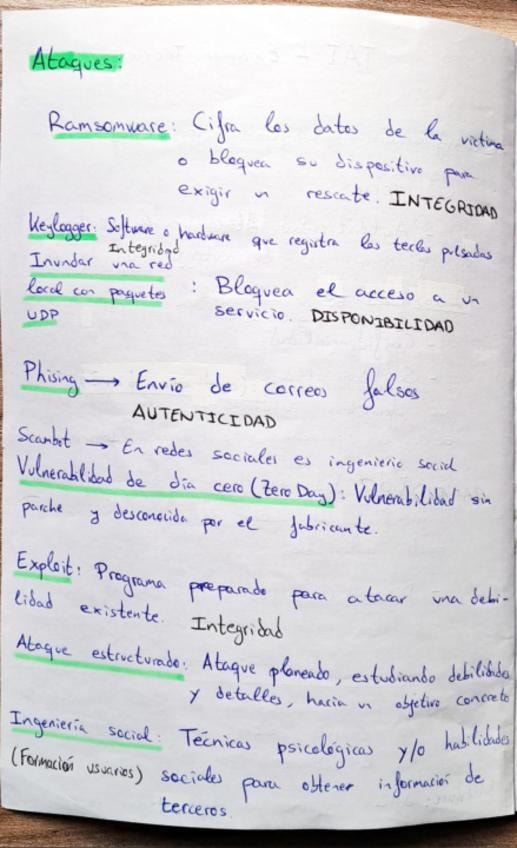 Ataques:
Ramsomware: Cifra los datos de la victima
o bloquea su dispositivo para
exigir un rescate. INTEGRIDAD
Keylogger: Software o hardware que registra las teclas pulsadas
Integridad
Inundar una red
local con paquetes : Bloquea el acceso a un
UDP servicio. DISPONIBILIDAD
Phising → Envío de correos falsos
AUTENTICIDAD
Scambot → En redes sociales es ingenieria social
Vulnerabilidad de día cero (Zero Day): Vulnerabilidad sin
parche y desconocida por el fabricante.
Exploit: Programa preparado para atacar una debi-
lidad existente. Integridad
Ataque estructurado: Ataque planeado, estudiando debilidades
y detalles, hacia un objetivo concreto
Ingeniería social: Técnicas psicológicas y/o habilidades
(Formación usuarios) sociales para obtener información de
terceros.